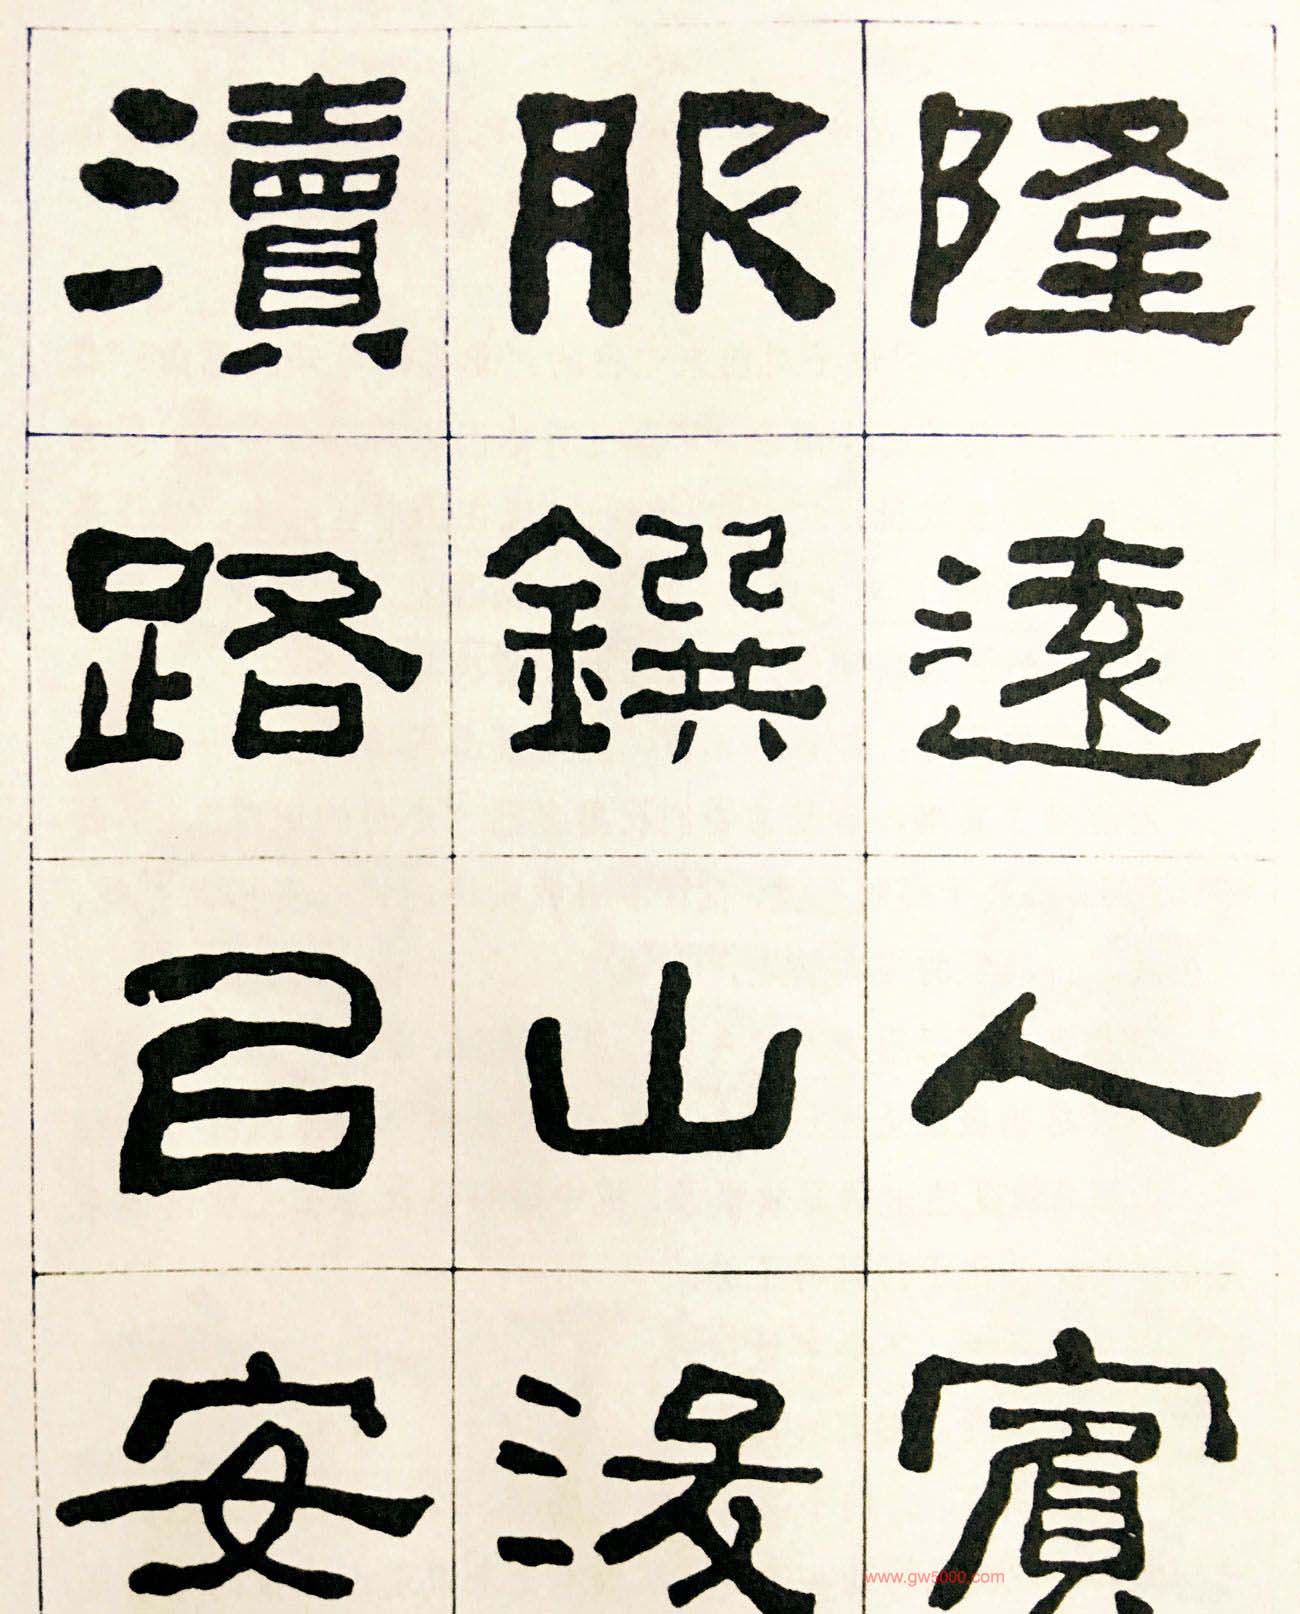 隆遠人賓
服鐉山浚
瀆路㠯安
www.gw5000.com